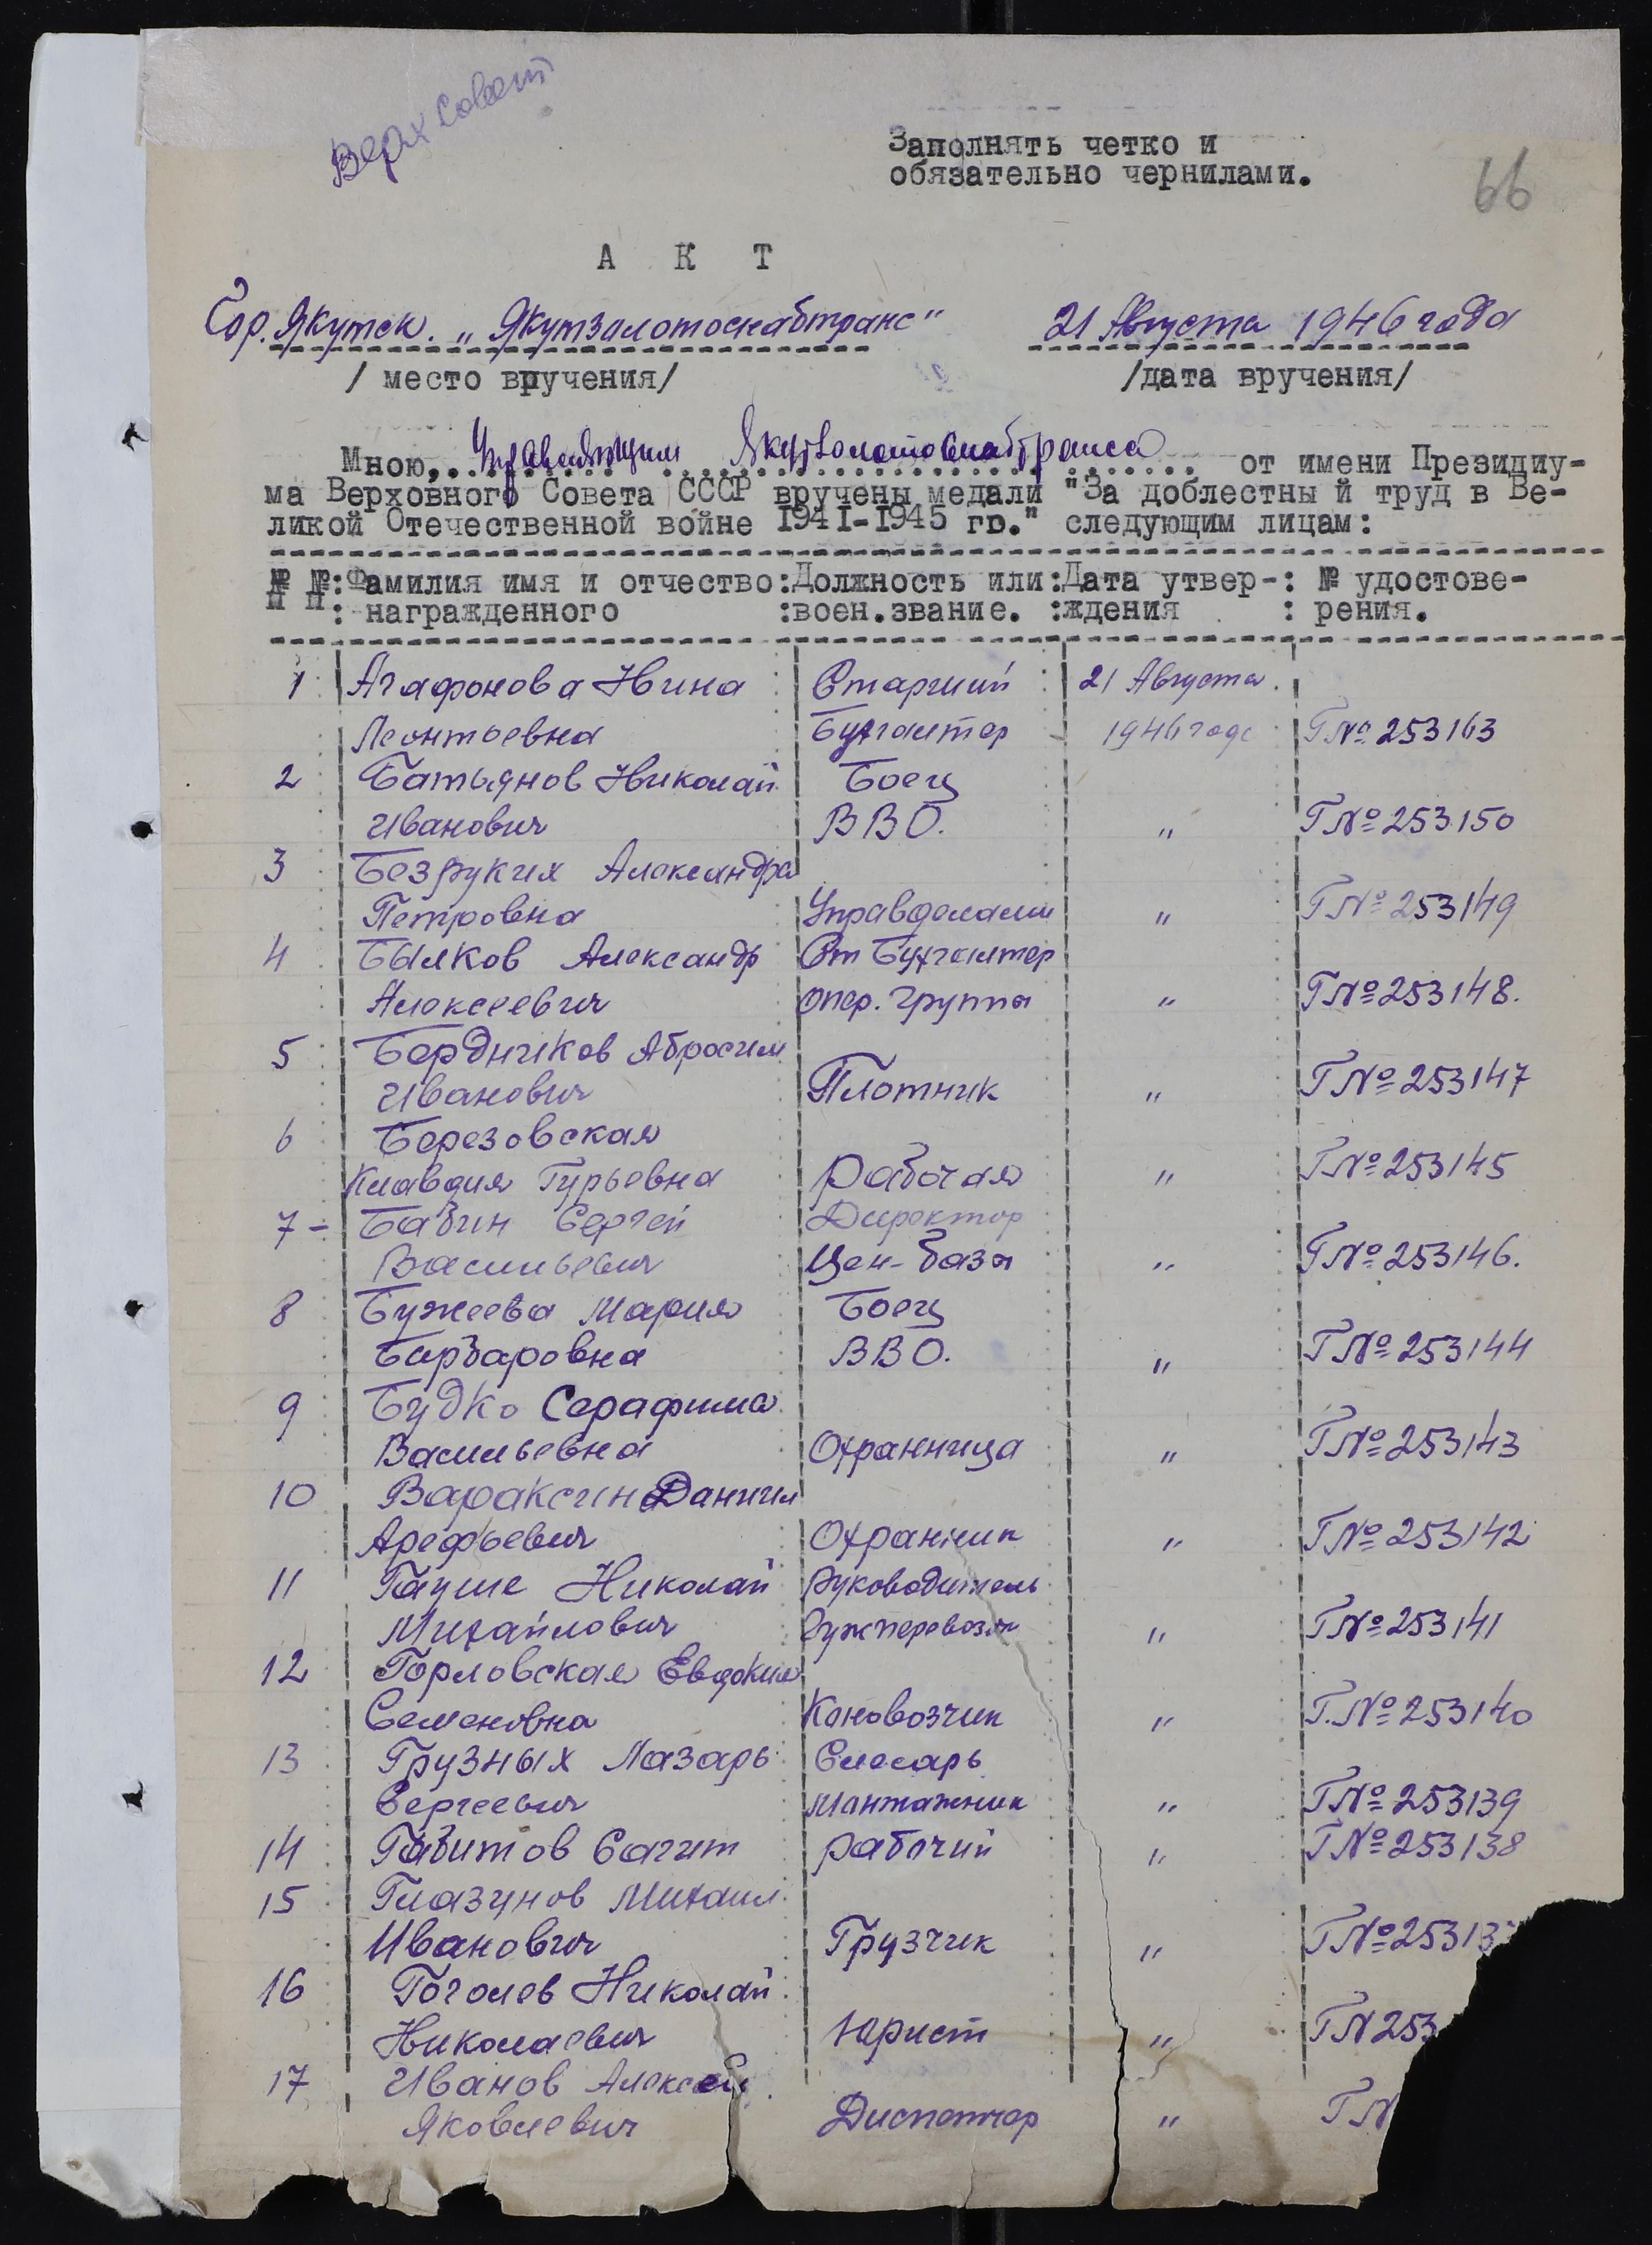 Верх Совет
Заполнять четко и
обязательно чернилами.
66
А К Т
Гор. Якутск. „Якутзолотоснабтранс" 21 Августа 1946 года
/ место вручения/ /дата вручения/
Мною, Управляющим Якутзолотоснабтранса от имени Президиу-
ма Верховного Совета СССР вручены медали "За доблестны й труд в Ве-
ликой Отечественной войне 1941-1945 гг." следующим лицам:
№ №:Фамилия имя и отчество:Должность или:Дата утвер-: № удостове-
п п: награжденного :воен.звание. :ждения : рения.
1 Агафонова Нина Старший 21 Августа
Леонтьевна Бухгалтер 1946 года Г № 253163
2 Батьянов Николай Боец
Иванович ВВО. „ Г № 253150
3 Безруких Александра
Петровна Управделами „ Г № 253149
4 Быков Александр Ст Бухгалтер
Алексеевич опер. группы „ Г № 253148.
5 Бердников Абросим
Иванович Плотник „ Г № 253147
6 Березовская
Клавдия Гурьевна Рабочая „ Г № 253145
7 – Бабин Сергей Директор
Васильевич Цен-базы „ Г № 253146.
8 Бужеева Мария Боец
Барбаровна ВВО. „ Г № 253144
9 Будко Серафима
Васильевна Охранница „ Г № 253143
10 Вараксин Даниил
Арефьевич Охранник „ Г № 253142
11 Гауше Николай Руководитель
Михайлович Гужперевозок „ Г № 253141
12 Горловская Евдокия
Семеновна Коновозчик „ Г. № 253140
13 Грузных Лазарь Слесарь
Сергеевич Мантажник „ Г № 253139
14 Габитов Сагит рабочий „ Г № 253138
15 Глазунов Михаил
Иванович Грузчик „ Г № 253137
16 Гоголев Николай
Николаевич Юрист „ Г N 253
17 Иванов Алексей
Яковлевич Диспетчер „ Г N